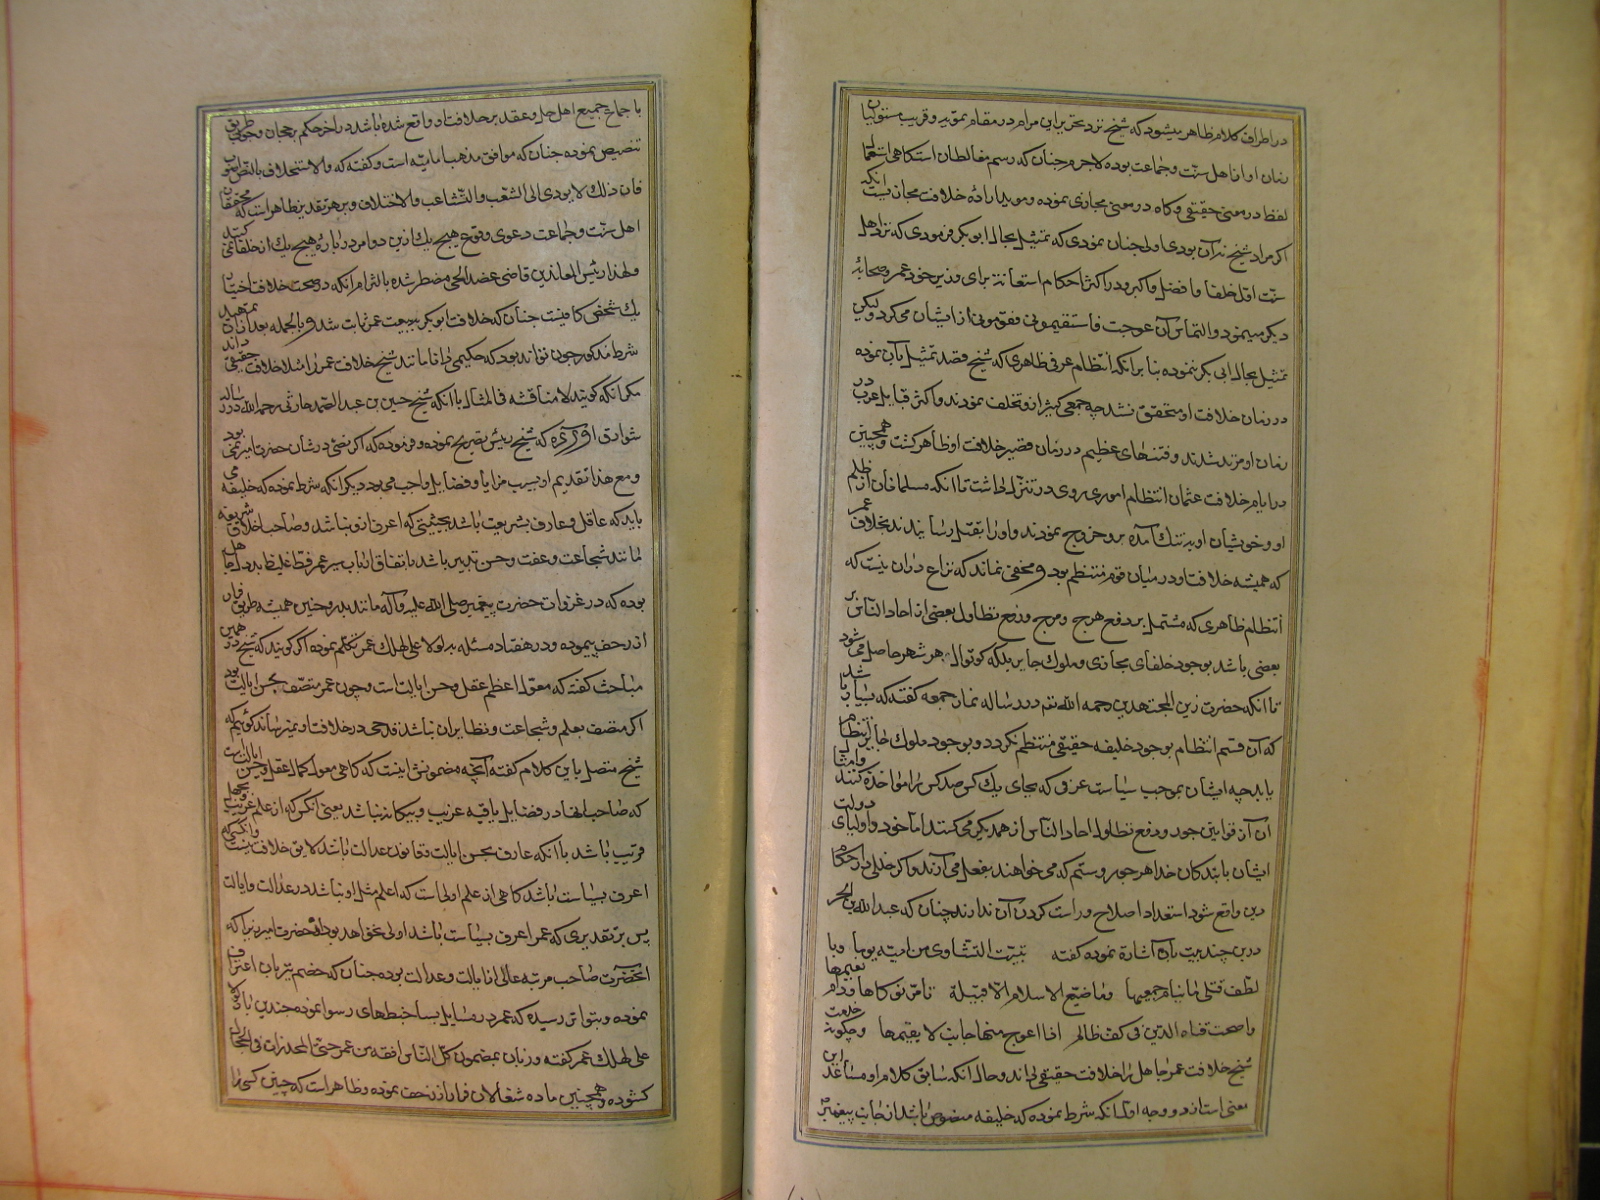 در اطراف کلام ظاهر میشود که شیخ نزد تحریر این مرام در مقام تمویه و فریب متولیان
زمان او از اهل سنّت و جماعت بوده لاجرم چنان که رسم مغالطان است کاهی استعمال
لفظ در معنی حقیقی و کاه در معنی مجازی نموده و موید ارادهٔ خلافت مجازیست انکه
اکر مراد شیخ نه آن بودی اولی چنان نمودی که تمثیل بحال ابو بکر فرمودی که نزد اهل
سنّت اوّل خلفا و افضل و اکبر و در اکثر احکام استعانه برای وزیر خود عمر و صحابهٔ
دیکر مینمود و التماس آن عوجت فاستقیمونی فقوّمونی از ایشان می کرد و لیکن
تمثیل بحال ابی بکر ننموده بنا بر انکه انتظام عرفی ظاهری که شیخ قصد تمثیل بآن نموده
در زمان خلافت او متحقق نشد چه جمعی کثیر ازو تخلف نمودند و اکثر قبایل عرب در
زمان او مرتد شدند و فتنهای عظیم در زمان قصیر خلافت او ظاهر کشت و همچنین
در ایام خلافت عثمان انتظام امور روی در تنزل داشت تا انکه مسلمانان از ظلم
او و خویشان او بتنک آمده برو خروج نمودند و او را بقتل رسانیدند بخلاف عمر
که همیشه خلافت او در میان قوم منتظم بود و مخفی نماند که نزاع در آن نیست که
انتظام ظاهری که مشتمل بر دفع هرج و مرج و رفع تطاول بعضی از احاد الناس بر
بعضی باشد بوجود خلفای مجازی و ملوک جایر بلکه کوتوال هر شهر حاصل می شود
تا انکه حضرت زین المجتهدین رحمه الله تم در رساله نماز جمعه کفته که بسیار باشد
که آن قسم انتظام بوجود خلیفه حقیقی منتظم نکردد و بوجود ملوک جایر انتظام
یابد چه ایشان بموجب سیاست عرف که بجای یک کس صد کس را مواخذه کنند و امثال
آن از قوانین جور و دفع تطاول احاد الناس از همدیکر می کنند اما خود و اولیای دولت
ایشان با بندکان خدا هر جور و ستم که می خواهند بفعل می آرند و اکر خللی در ارکان
دین واقع شود استعداد اصلاح و راست کردن آن ندارند چنان که عبد الله بن الحر
درین چند بیت بآن اشارة نموده کفته تبیت النشاوی من امیّه نوما و با
لطّف قتلی ما ینام حمیمها وما ضیّع الاسلام الّا قبیلة تأمّر نوکاها و دام نعیمها
واضحت قناة الدین فی کفّ ظالم اذا اعوج منها جانب لا یقیمها و چکونه
شیخ خلافت عمر جاهل را خلافت حقیقی داند و حال آنکه سابق کلام او مساعد این
معنی است از دو وجه اوّل آنکه شرط نموده که خلیفه منصوص باشد از جانب پیغمبر
با جماع جمیع اهل حل و عقد بر خلافت او واقع شده باشد و در آخر حکم برجحان و
تنصیص نموده چنان که موافق مذهب امامیّه است و کفته که والاستخلاف بالنّص اصوب
فان ذلک لا یودی الی الشّعب والتّشاعب والاختلاف و بر هر تقدیر ظاهر است که محققان
اهل سنّت و جماعت دعوی وقوع هیچ یک ازین دو امر در بارهٔ هیچ یک از خلفا نمی کنند
و لهذا رئیس المعاندین قاضی عضد الجی مضطر شده بالتزام انکه در صحت خلافت اختیار
یک شخص کافیست چنان که خلافت ابو بکر ببیعت عمر ثابت شد و بالجمله بعد از آن
شرط مذکور چون تواند بود که حکیمی دانا مانند شیخ خلافت عمر را مثلا خلافت حقیقی داند
مکر انکه کویند لا مناقشه فی المثال با آنکه شیخ حسین بن عبد الصّمد حارثی رحمه الله در رساله
شوارق آورده که شیخ رئیس تصریح نموده و فرموده که اکر نصّی در شان حضرت امیر نمی بود
و مع هذا تقدیم او بسبب مزایا و فضایل واجب می بود دیکر آنکه شرط نموده که خلیفه می
باید که عاقل و عارف بشریعت باشد بحیثیتی که اعرف ازو نباشد و صاحب اخلاق شریفه
مانند شجاعت و عفت و حسن تدبیر باشد باتفاق ارباب سیر عمر فظ غلیظ
بوده که در غزوات حضرت پیغمبر صلی الله علیه وآله مانند بدر و حنین همیشه طریق فرار
از زحف پیموده و در هفتاد مسئله بر لولا علی لهلک عمر تکلم نموده اکر کویند که شیخ در همین
مباحث کفته که معوّل اعظم عقل و حسن ایالت است و چون عمر متصّف بحسن ایالت بود
اکر متصف بعلم و شجاعت و نظایر آن نباشد قدحی در خلافت او نمیرساند کوییم که
شیخ متصل باین کلام کفته آنچه مضمونش اینست که کاهی معول کمال عقل و حسن ایالت است
که صاحب آنها در فضایل باقیه غریب و بیکانه نباشد یعنی آنکس که از علم غریب و بجهل
قریب باشد با آنکه عارف بحسن ایالت و قانون عدالت باشد لایق خلافت نیست و آنکس که
اعرف بسیاست باشد کاهی از علم اولی است که اعلم مثل او نباشد در عدالت و ایالت
پس بر تقدیری که عمر اعرف بسیاست باشد اولی نخواهد بود از حضرت امیر زیرا که
آنحضرت صاحب مرتبه عالی از ایالت و عدالت بوده چنان که خصم نیز بآن اعتراف
نموده و بتواتر رسیده که عمر در مسایل بسا خبطهای رسوا نموده چندین بار لولا
علی لهلک عمر کفته و زبان بمضمون کلّ النّاس افقه من عمر حتی المخدّرات فی الحجال
کشوده و همچنین ماده شغالان فرار از زحف نموده و ظاهر است که چنین کسی را